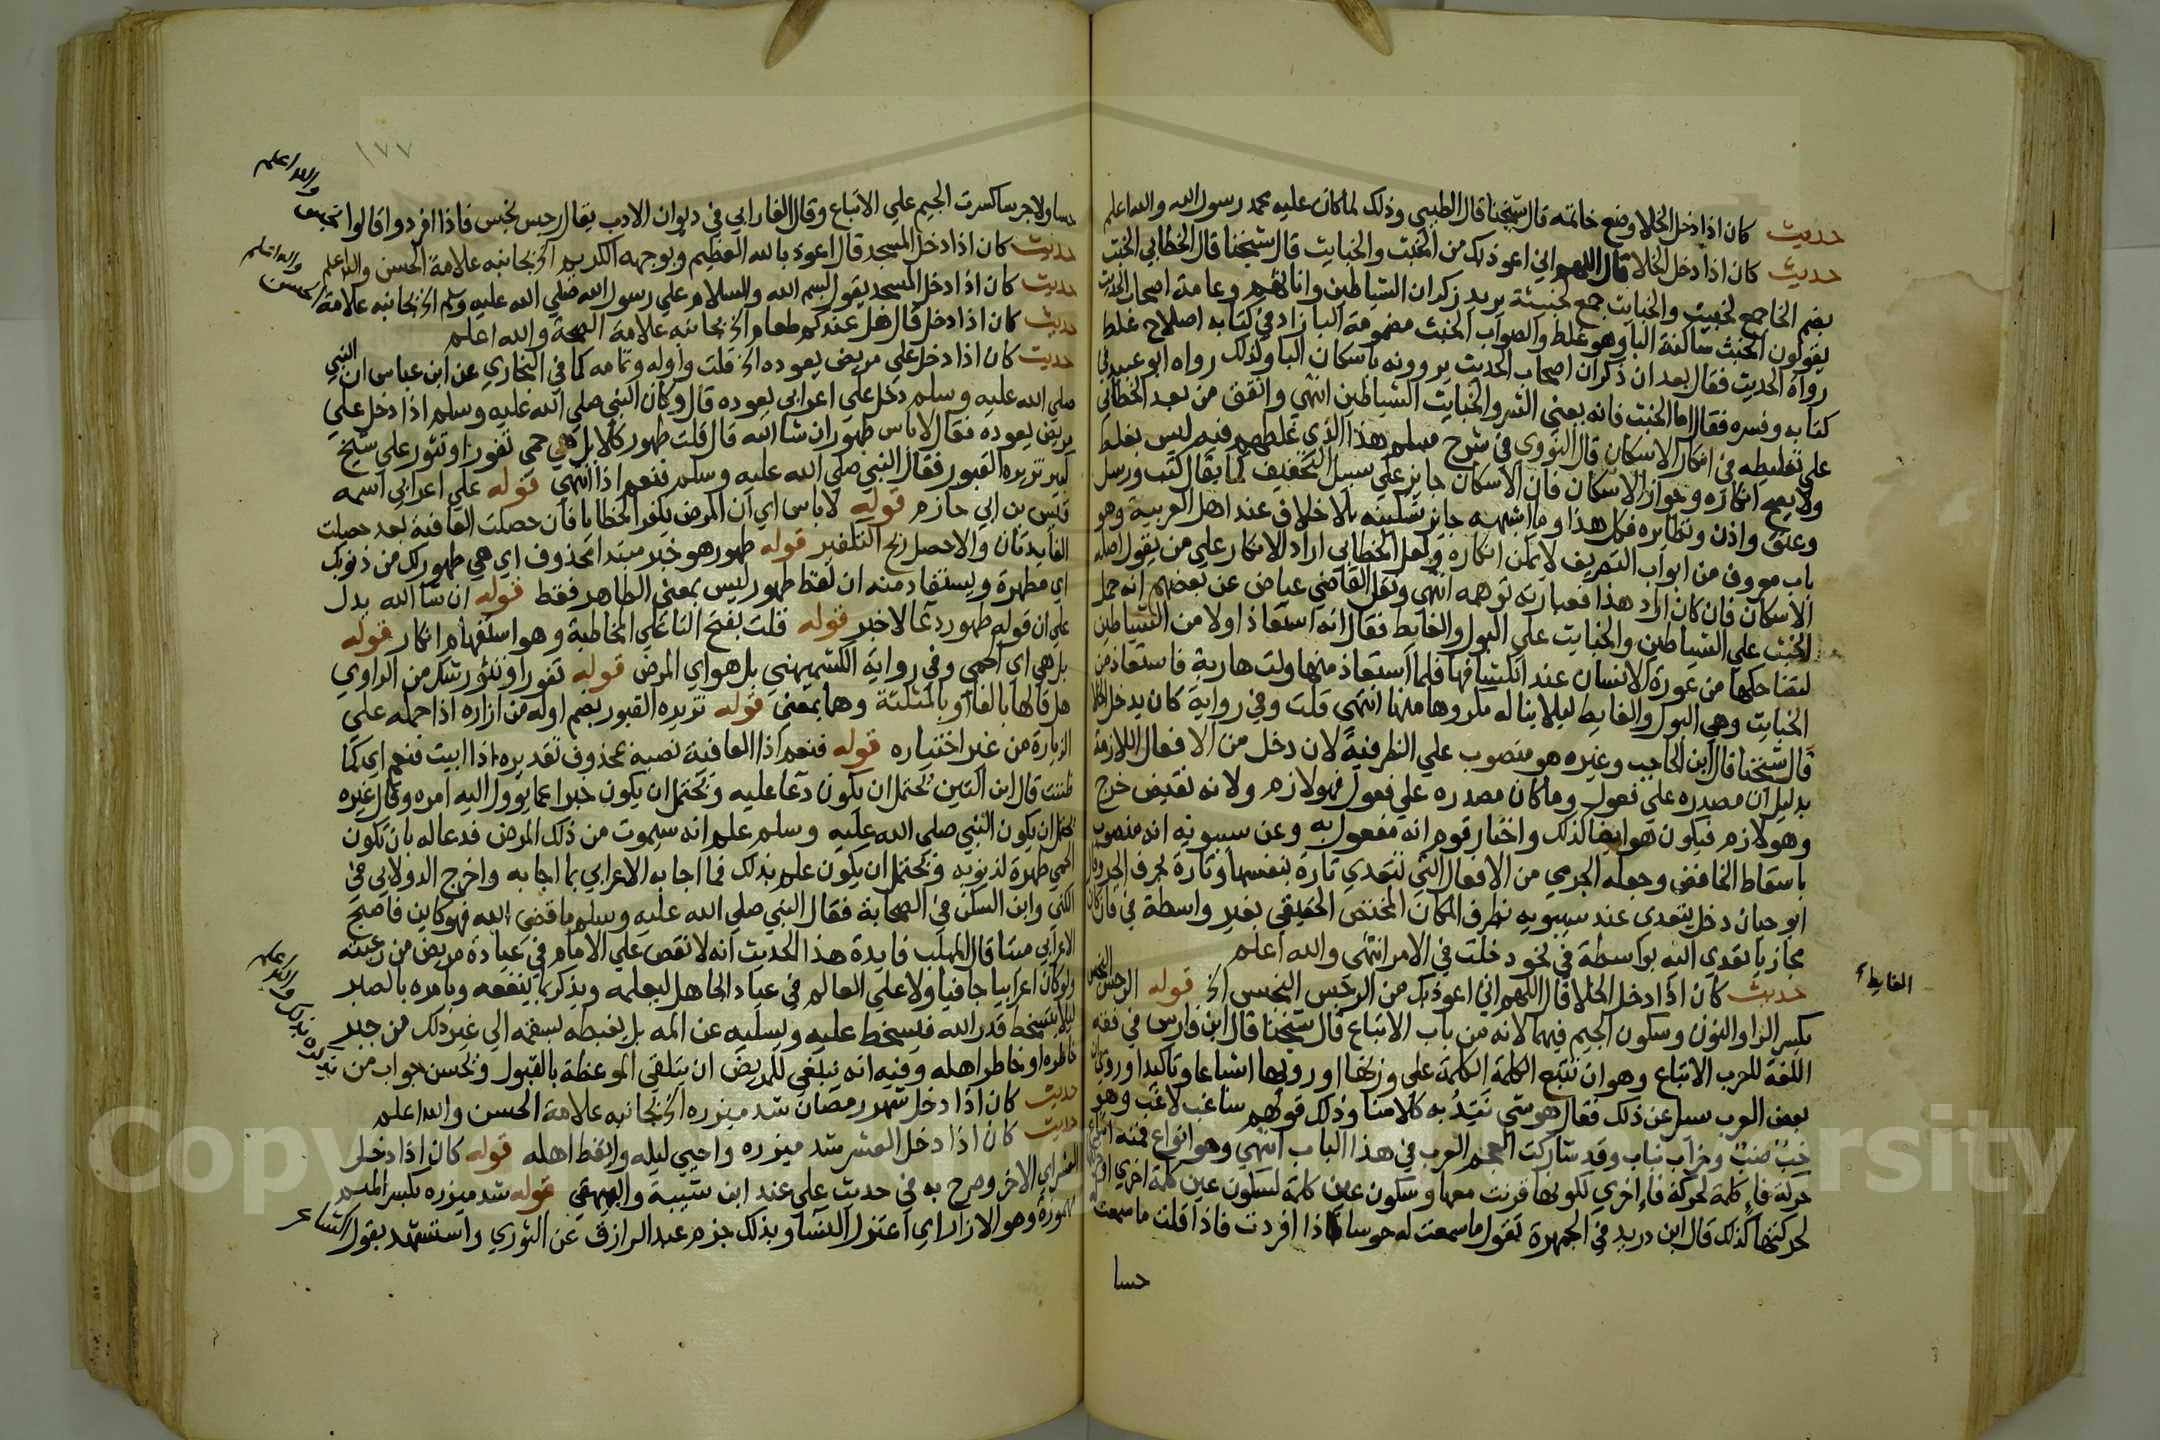 حديث كان اذا دخل الخلا وضع خاتمه قال شيخنا قال الطيبي وذلك لما كان عليه محمد رسول الله والله اعلم
حديث كان اذا دخل الخلا قال اللهم اني اعوذ بك من الخبث والخبايث قال شيخنا قال الخطابي الخبث
بضم الخا جمع لخبيث والخبايث جمع لخبيثة يريد ذكران الشياطين واناثهم وعامة اصحاب الحديث
يقولون الخبث ساكنة البا وهو غلط والصواب الخبث مضمومة البا زاد في كتابه اصلاح غلط
رواة الحديث فقال بعد ان ذكر ان اصحاب الحديث يروونه باسكان البا وكذلك رواه ابو عبيد في
كتابه وفسره فقال اما الخبث فانه يعني الشر والخبايث الشياطين انتهي واتفق من بعد الخطابي
علي تغليطه في انكار الاسكان قال النووي في شرح مسلم هذا الذي غلطهم فيه ليس بغلط
ولا يصح انكاره وجواز الاسكان فان الاسكان جايز علي سبيل التخفيف كما يقال كتب ورسل
وعنق واذن ونظايره فكل هذا وما اشبهه جايز تسكينه بلا خلاف عند اهل العربية وهو
باب معروف من ابواب التصريف لا يمكن انكاره ولعل الخطابي اراد الانكار علي من يقول اصله
الاسكان فان كان اراد هذا فعبارته توهمه انتهي ونقل القاضي عياض عن بعضهم انه حمل
الخبث علي الشياطين والخبايث علي البول والغايط فقال انه استعاذ اولا من الشياطين
لتضاحكها من عورة الانسان عند انكشافها فلما استعاذ منها ولت هاربة فاستعاذ من
الخبايث وهي البول والغايط ليلا يناله مكروها منها انتهي قلت وفي رواية كان يدخل الخلا
قال شيخنا قال ابن الحاجب وغيره هو منصوب علي الظرفية لان دخل من الافعال اللازمة
بدليل ان مصدره علي فعول وما كان مصدره علي فعول فهو لازم ولانه نقيض خرج
وهو لازم فيكون هو ايضا كذلك واختار قوم انه مفعول به وعن سيبويه انه منصوب
باسقاط الخافض وجعله الجرمي من الافعال التي تتعدي تارة بنفسها وتارة بحرف الجر وقال
ابو حيان دخل يتعدي عند سيبويه لظرف المكان المختص الحقيقي بغير واسطة في فان كان
مجازيا تعدي اليه بواسطة في نحو دخلت في الامر انتهي والله اعلم
حديث كان اذا دخل الخلا قال اللهم اني اعوذ بك من الرجس النجس الخ قوله الرجس النجس
بكسر الرا والنون وسكون الجيم فيهما لانه من باب الاتباع قال شيخنا قال ابن فارس في فقه
اللغة للعرب الاتباع وهو ان تتبع الكلمة الكلمة علي وزنها او رويها اشباعا وتاكيدا وروي ان
بعض العرب سيل عن ذلك فقال هو شي نتد به كلامنا وذلك قولهم ساغب لاغب وهو
خب ضب وخراب يباب وقد شاركت العجم العرب في هذا الباب انتهي وهو انواع فمنه اتباع
حركة فا كلمة لحركة فا اخري لكونها قرنت معها وسكون عين كلمة لسكون عين كلمة اخري او
لحركتها كذلك قال ابن دريد في الجمهرة تقول ما سمعت له جرسا اذا افردت فاذا قلت ما سمعت
حسا
الغايط
١٧٧
حسا ولا جرسا كسرت الجيم علي الاتباع وقال الفارابي في ديوان الادب يقال رجس نجس فاذا افردوا قالوا نجس
والله اعلم
حديث كان اذا دخل المسجد قال اعوذ بالله العظيم وبوجهه الكريم الخ بجانبه علامة الحسن والله اعلم
حديث كان اذا دخل المسجد يقول بسم الله والسلام علي رسول الله صلي الله عليه وسلم الخ بجانبه علامة الحسن
والله اعلم
حديث كان اذا دخل قال هل عندكم طعام الخ بجانبه علامة الصحة والله اعلم
حديث كان اذا دخل علي مريض يعوده الخ قلت واوله وتمامه كما في البخاري عن ابن عباس ان النبي
صلي الله عليه وسلم دخل علي اعرابي يعوده قال وكان النبي صلي الله عليه وسلم اذا دخل علي
مريض يعوده فقال لا باس طهور ان شا الله قال قلت طهور كلا بل هي حمي تفور او تثور علي شيخ
كبير تزيره القبور فقال النبي صلي الله عليه وسلم فنعم اذا انتهي قوله علي اعرابي اسمه
قيس بن ابي حازم قوله لا باس اي ان المرض يكفر الخطايا فان حصلت العافية فقد حصلت
الفايدتان والا حصل ربح التكفير قوله طهور هو خبر مبتدا محذوف اي هي طهور لك من ذنوبك
اي مطهرة ويستفاد منه ان لفظ طهور ليس بمعني الطاهر فقط قوله ان شا الله يدل
علي ان قوله طهور دعا لا خبر قوله قلت بفتح التا علي المخاطبة وهو استفهام انكار قوله
بل هي اي الحمي وفي رواية الكشميهني بل هو اي المرض قوله تفور او تثور شك من الراوي
هل قالها بالفا او بالمثلثة وهما بمعني قوله تزيره القبور بضم اوله من ازاره اذا حمله علي
الزيارة من غير اختياره قوله فنعم اذا الفا فيه نصبه محذوف تقديره اذا ابيت فنعم اي كما
ظننت قال ابن التين يحتمل ان يكون دعا عليه ويحتمل ان يكون خبرا عما يوول اليه امره وقال غيره
يحتمل ان يكون النبي صلي الله عليه وسلم علم انه سيموت من ذلك المرض فدعا له بان تكون
الحمي طهرة لذنوبه ويحتمل ان يكون علم بذلك فما اجابه الاعرابي بما اجابه واخرج الدولابي في
الكني وابن السكن في الصحابة فقال النبي صلي الله عليه وسلم ما قضي الله فهو كاين فاصبح
الاعرابي ميتا قال المهلب فايدة هذا الحديث انه لا نقص علي الامام في عيادة مريض من رعيته
ولو كان اعرابيا جافيا ولا علي العالم في عياد الجاهل ليعلمه ويذكره بما ينفعه ويامره بالصبر
ليلا يتسخط قدر الله فيسخط عليه ويسليه عن المه بل يغبطه بسقمه الي غير ذلك من جبر
خاطره او خاطر اهله وفيه انه ينبغي للمريض ان يتلقي الموعظة بالقبول ويحسن جواب من
يذكره بذلك والله اعلم
حديث كان اذا دخل شهر رمضان شد ميزره الخ بجانبه علامة الحسن والله اعلم
حديث كان اذا دخل العشر شد ميزره واحيي ليله وايقظ اهله قوله كان اذا دخل
العشر اي الاخر وصرح به في حديث علي عند ابن شيبة والبيهقي قوله شد ميزره بكسر الميم
مهموزة وهو الازار اي اعتزل النسا وبذلك جزم عبد الرزاق عن الثوري واستشهد بقول الشاعر
Copyright © King Saud University